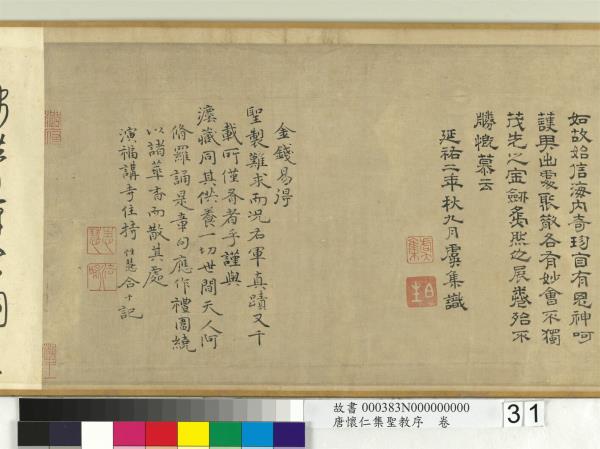 如故始信海內奇珍自有鬼神呵
護與出處聚散各有妙會不獨
茂先之寶劍
勝慨慕云
延祐二年秋九月虞集識
金錢易得
聖製難求而況右軍真蹟又千
載所僅存者乎謹與
瀍藏同其供養一切世間天人阿
脩羅誦是章句應作禮圍繞
以諸華香而散其處
演福講寺住持 合十記
故書 000383N000000000
唐懷仁集聖教序 卷
31